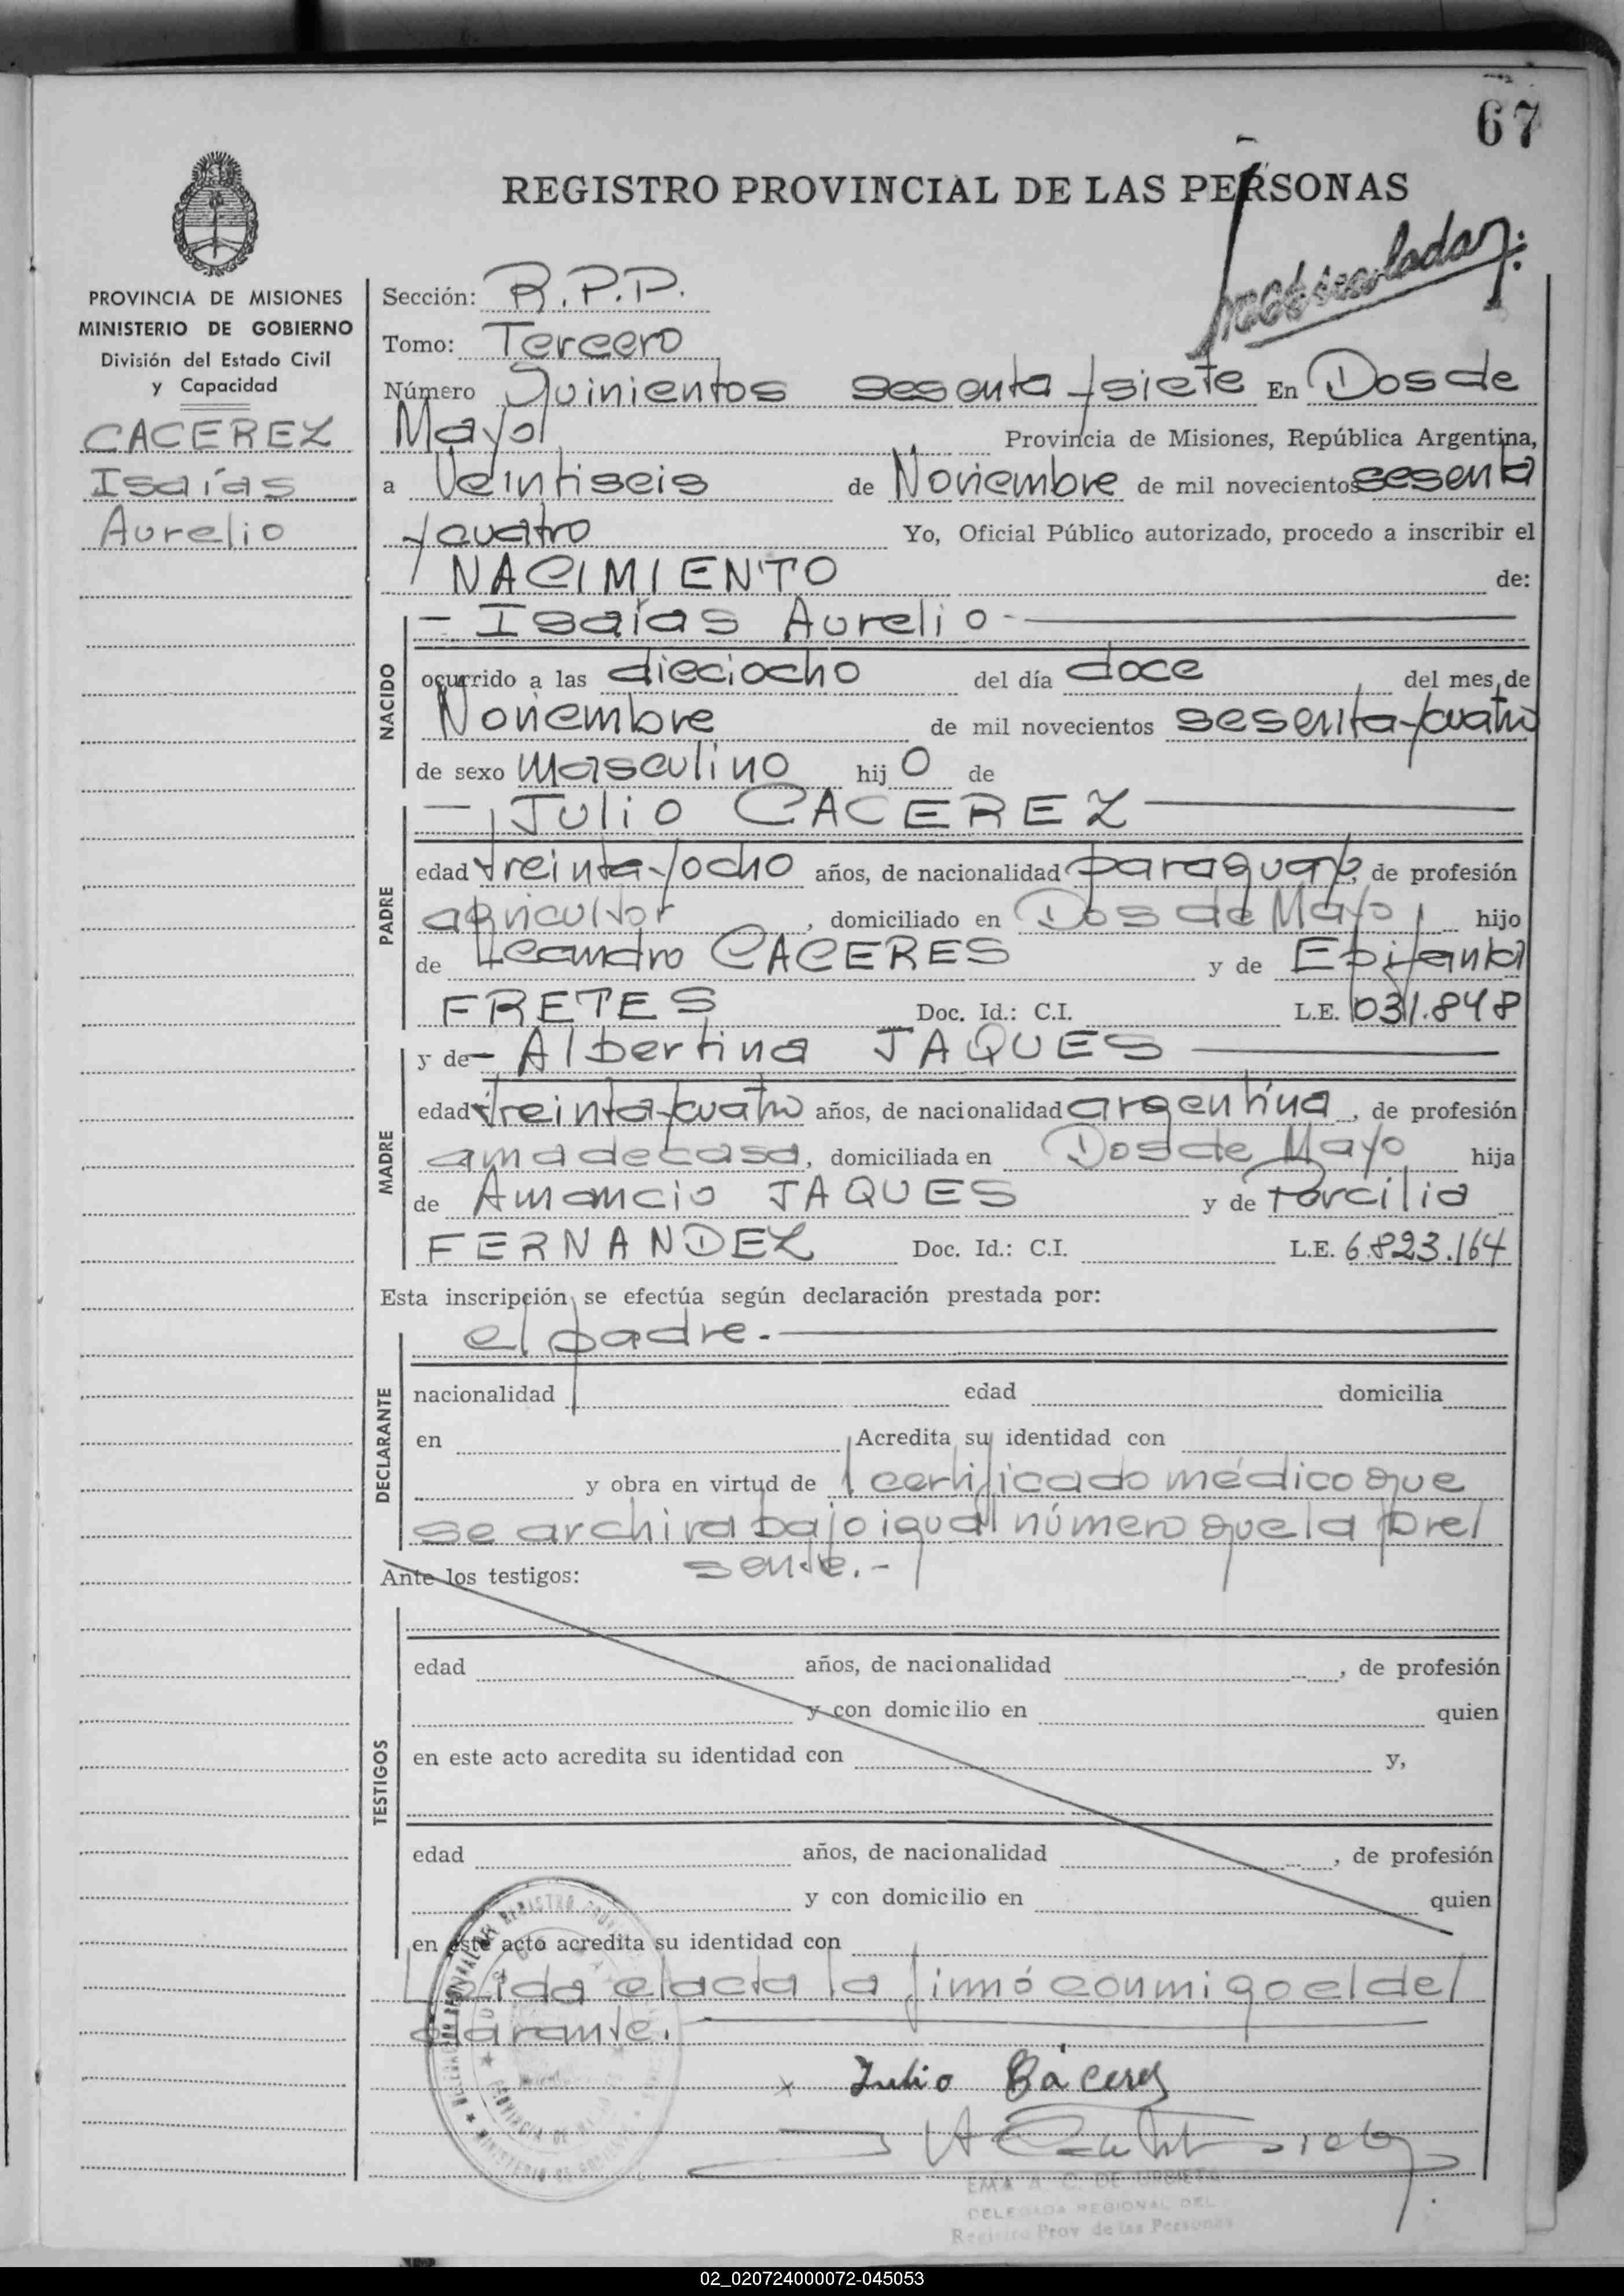 67
REGISTRO PROVINCIAL DE LAS PERSONAS
PROVINCIA DE MISIONES
MINISTERIO DE GOBIERNO
División del Estado Civil
y Capacidad
CACEREZ
Isaías
Aurelio
Sección: R.P.P.
Tomo: Tercero
Número Quinientos sesenta y siete En Dos de
Mayo Provincia de Misiones, República Argentina,
a Veintiseis de Noviembre de mil novecientos sesenta
y cuatro Yo, Oficial Público autorizado, procedo a inscribir el
NACIMIENTO de:
NACIDO
- Isaías Aurelio -
ocurrido a las dieciocho del día doce del mes de
Noviembre de mil novecientos sesenta y cuatro
de sexo masculino hij o de
PADRE
- Julio CACEREZ
edad treinta y ocho años, de nacionalidad paraguayo, de profesión
agricultor, domiciliado en Dos de Mayo hijo
de Leandro CACERES y de Epifania
FRETES Doc. Id.: C.I. L.E. 031.848
MADRE
y de - Albertina JAQUES
edad treinta y cuatro años, de nacionalidad argentina, de profesión
ama de casa, domiciliada en Dos de Mayo hija
de Amancio JAQUES y de Porcilia
FERNANDEZ Doc. Id.: C.I. L.E. 6.823.164
Esta inscripción se efectúa según declaración prestada por:
DECLARANTE
el padre.-
nacionalidad edad domicilia
en Acredita su identidad con
y obra en virtud de 1 certificado médico que
se archiva bajo igual número que la pre/
sente.-
Ante los testigos:
TESTIGOS
edad años, de nacionalidad , de profesión
y con domicilio en quien
en este acto acredita su identidad con y,
edad años, de nacionalidad , de profesión
y con domicilio en quien
en este acto acredita su identidad con
Leida el acta la firmó conmigo el de/
clarante.
x Julio Cáceres
EMA A. C. DE URBIETA
DELEGADA REGIONAL DEL
Registro Prov de las Personas
02_020724000072-045053